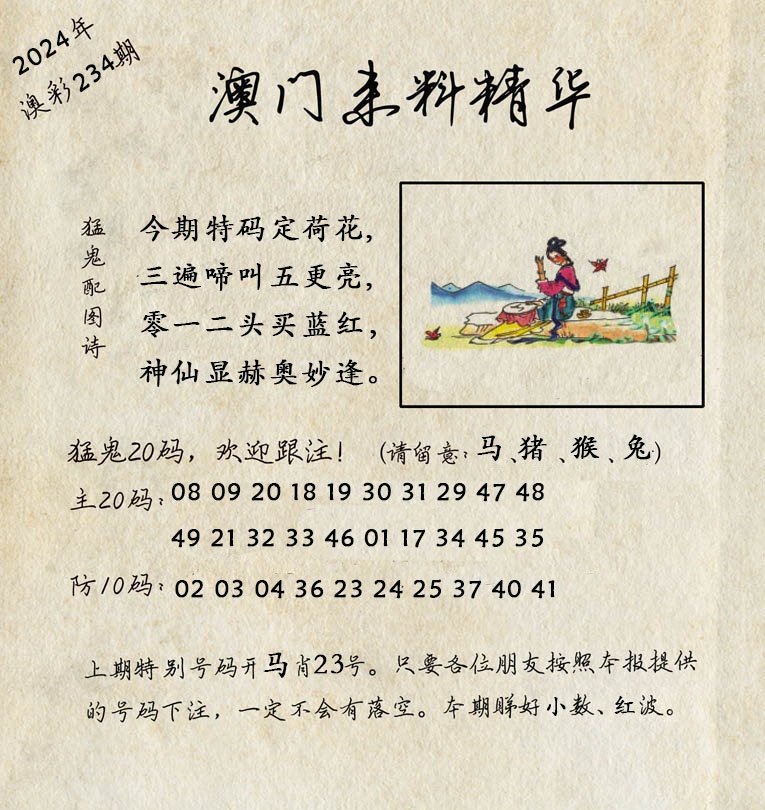 2024年
澳彩234期
澳门来料精华
猛鬼配图诗
今期特码定荷花，
三遍啼叫五更亮，
零一二头买蓝红，
神仙显赫奥妙逢。
猛鬼20码，欢迎跟注！（请留意：马、猪、猴、兔）
主20码：08 09 20 18 19 30 31 29 47 48
49 21 32 33 46 01 17 34 45 35
防10码：02 03 04 36 23 24 25 37 40 41
上期特别号码开马肖23号。只要各位朋友按照本报提供
的号码下注，一定不会有落空。本期睇好小数、红波。